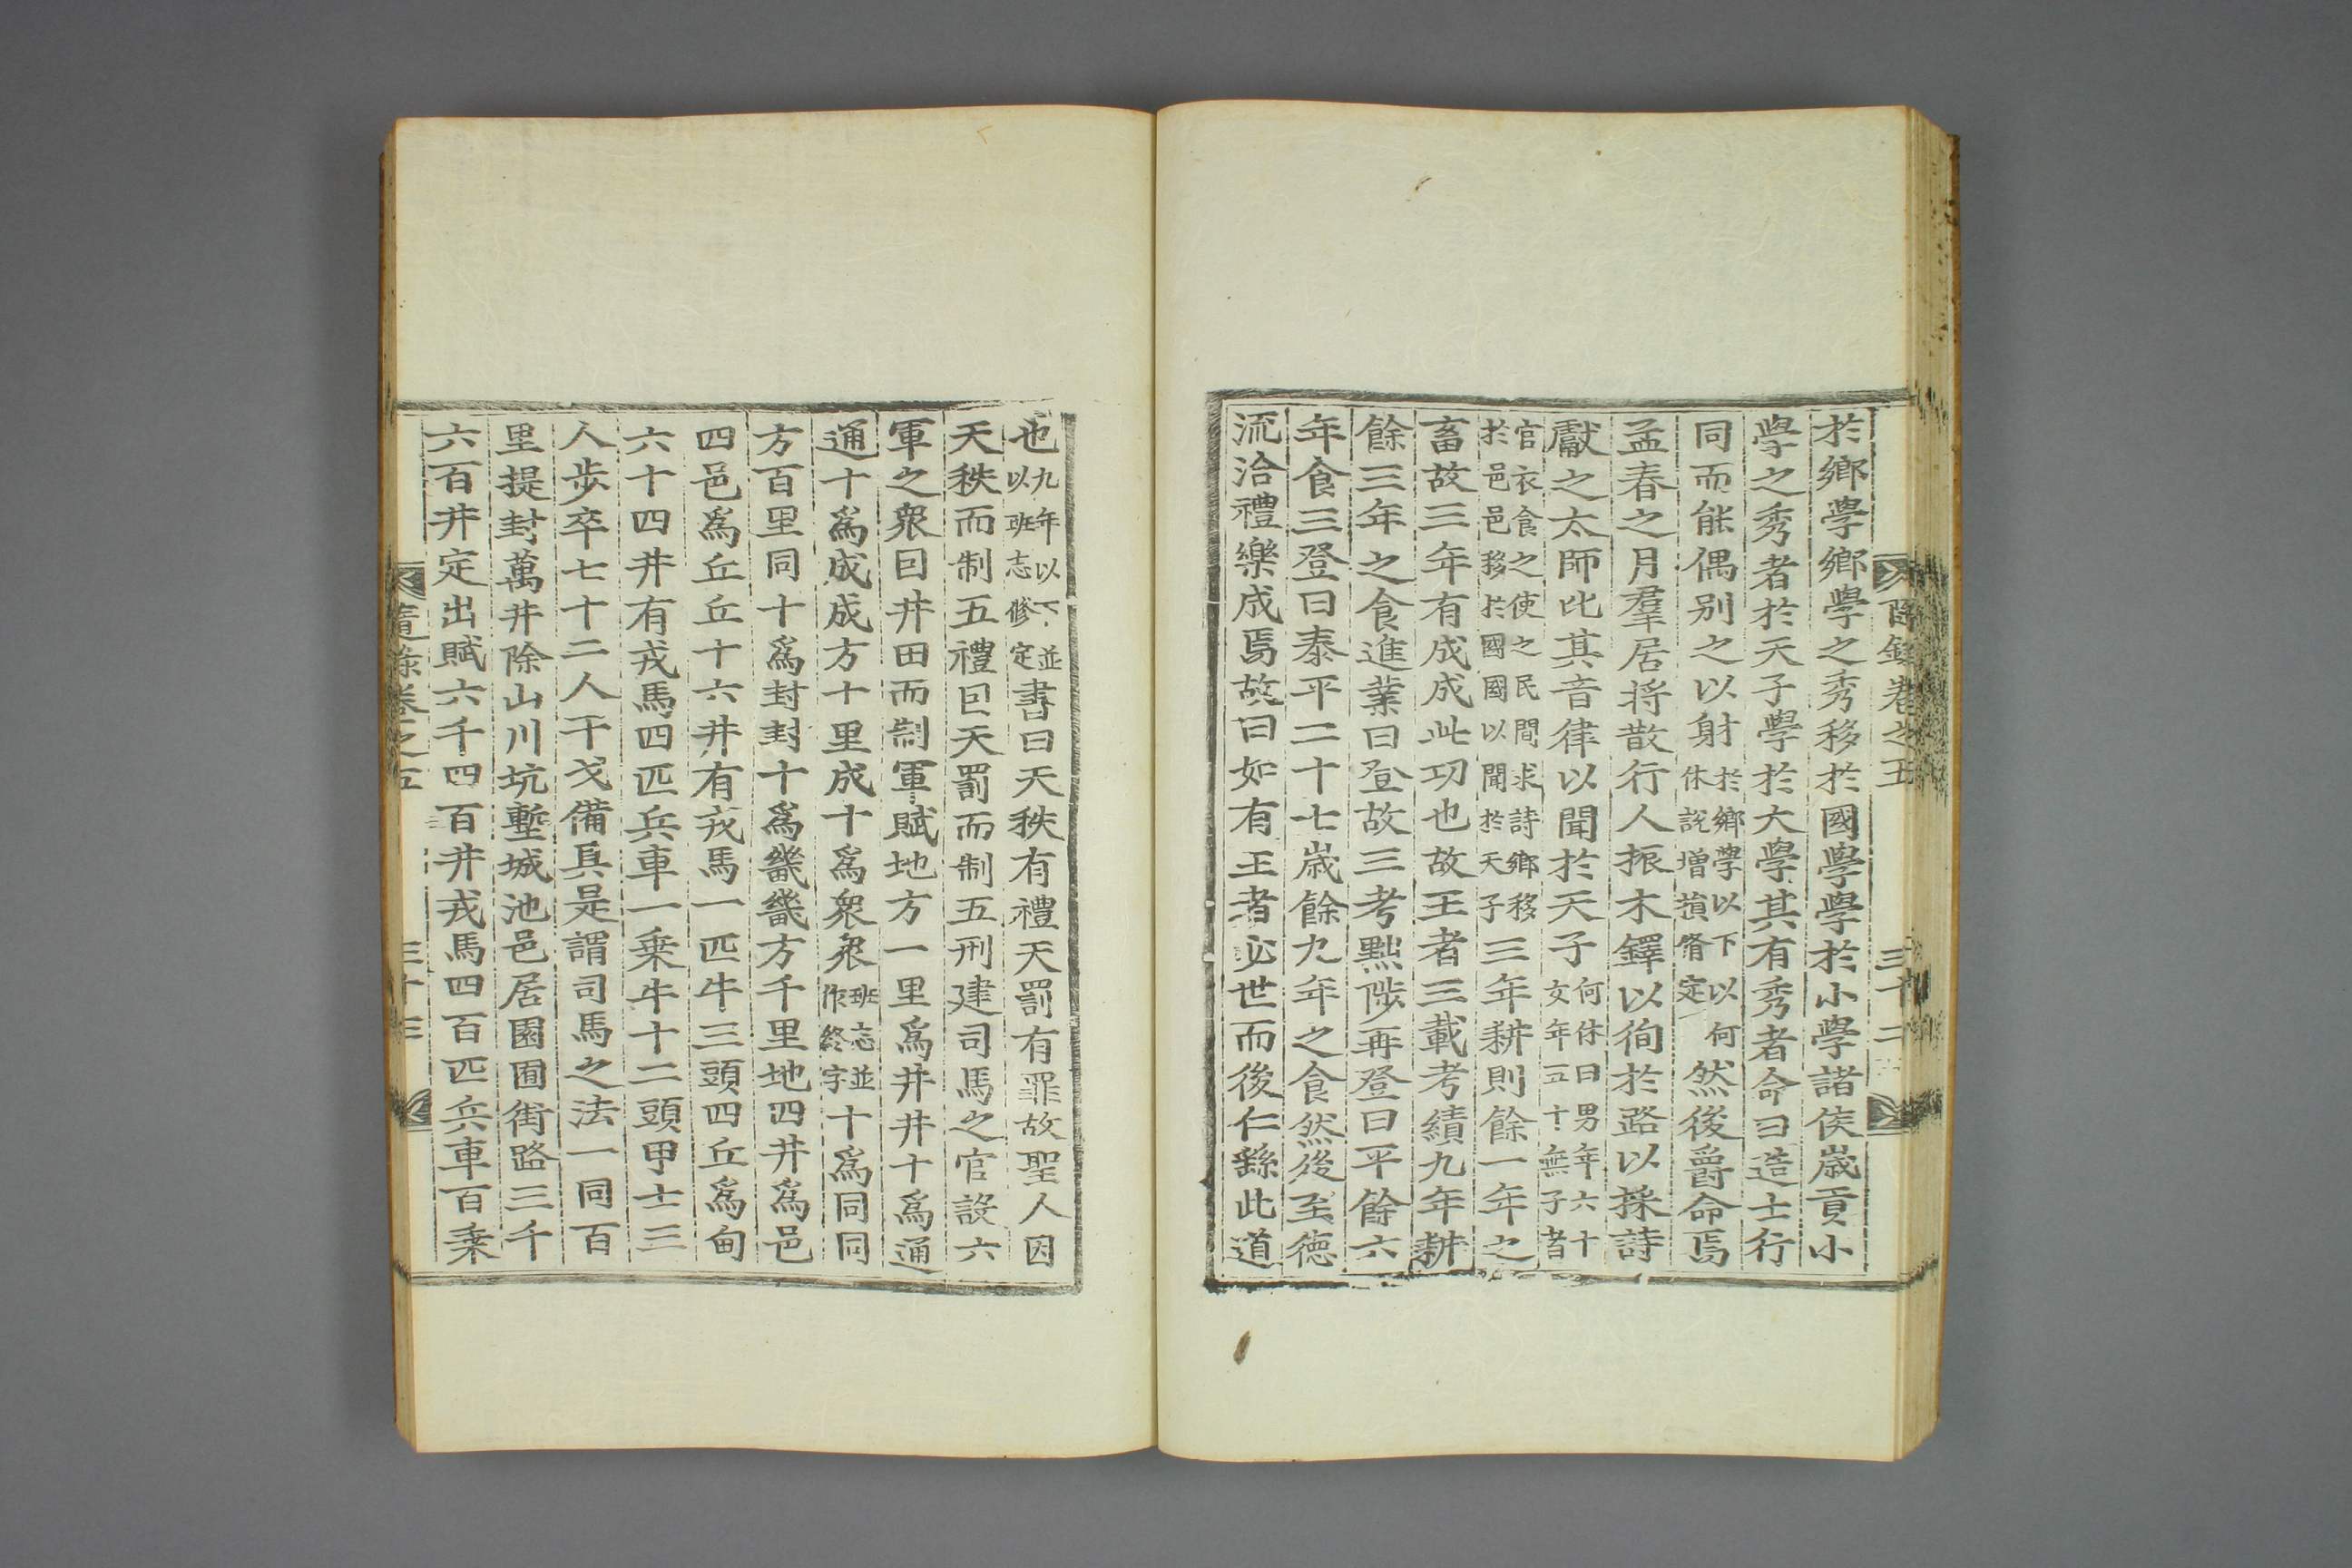 於鄉學鄉學之秀移於國學學於小學諸侯歲貢小
學之秀者於天子學於大學其有秀者命曰造士行
同而能偶別之以射於鄉學以下以何休說增損脩定然後爵命焉
孟春之月羣居將散行人振木鐸以徇於路以採詩
獻之太師比其音律以聞於天子何休曰男年六十女年五十無子者
官衣食之使之民間求詩鄉移於邑邑移於國國以聞於天子三年耕則餘一年之
畜故三年有成成此功也故王者三載考績九年耕
餘三年之食進業曰登故三考黜陟再登曰平餘六
年食三登曰泰平二十七歲餘九年之食然後至德
流洽禮樂成焉故曰如有王者必世而後仁繇此道
三十二
也九年以下並以班志修定書曰天秩有禮天罰有罪故聖人因
天秩而制五禮因天罰而制五刑建司馬之官設六
軍之衆因井田而制軍賦地方一里爲井井十爲通
通十爲成成方十里成十爲衆衆班志並作終字十爲同同
方百里同十爲封封十爲畿畿方千里地四井爲邑
四邑爲丘丘十六井有戎馬一匹牛三頭四丘爲甸
六十四井有戎馬四匹兵車一乗牛十二頭甲士三
人步卒七十二人干戈備具是謂司馬之法一同百
里提封萬井除山川坑塹城池邑居園囿街路三千
六百井定出賦六千四百井戎馬四百匹兵車百乗
遺錄卷之五
三十三